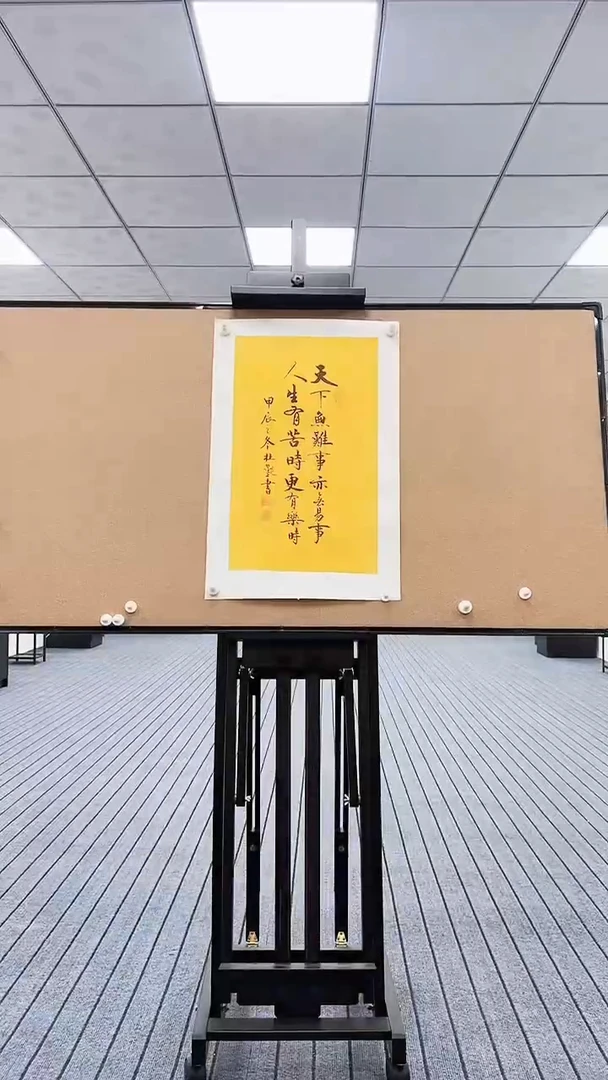 天下無難事亦無易事
人生有苦時更有樂時
甲辰之冬書